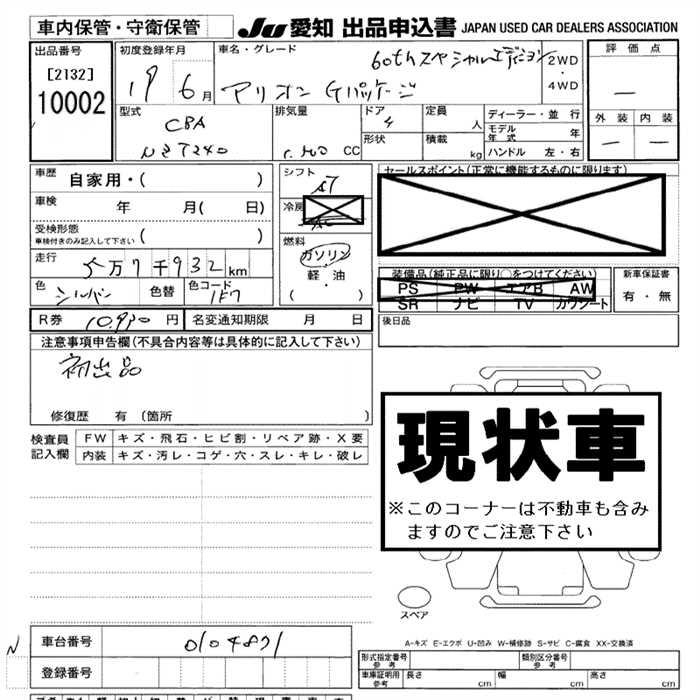 車内保管・守衛保管
JU 愛知 出品申込書 JAPAN USED CAR DEALERS ASSOCIATION
出品番号
[2132]
10002
初度登録年月
19 6月
車名・グレード
60thスペシャルエディション
アリオン Gパッケージ
2WD
・
4WD
評価点
―
外装 内装
― ―
型式
CBA
NZT240
排気量
1.500 CC
ドア
4
形状
定員
人
積載
kg
ディーラー・並行
モデル年式 年
ハンドル 左・右
車歴
自家用・( )
車検 年 月( 日)
受検形態
車検付きのみ記入して下さい ( )
走行 5万7千932km
色 シルバー 色替 色コード 1F7
シフト
AT
冷房
燃料
ガソリン
軽・油
( ・ )
セールスポイント(正常に機能するものに限ります)
装備品(純正品に限り〇をつけてください)
PS PW エアB AW
SR ナビ TV カワシート
新車保証書
有・無
R券 10,930 円 名変通知期限 月 日
後日品
注意事項申告欄(不具合内容等は具体的に記入して下さい)
初出品
修復歴 有(箇所 )
検査員記入欄
FW キズ・飛石・ヒビ割・リペア跡・X要
内装 キズ・汚レ・コゲ・穴・スレ・キレ・破レ
現状車
※このコーナーは不動車も含み
ますのでご注意下さい
スペア
A-キズ E-エクボ U-凹み W-補修跡 S-サビ C-腐食 XX-交換済
N
車台番号 0104871
登録番号
型式指定番号
参考
類別区分番号
参考
車庫証明用
参考
長さ 幅 高さ
cm cm cm